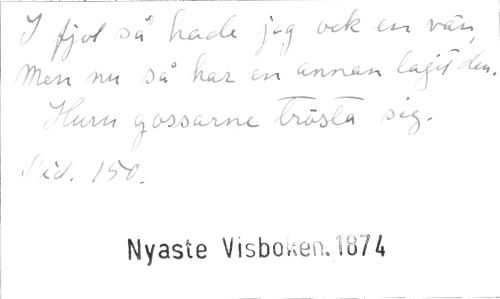 I fjol så hade jag ock en vän,
Men nu så har en annan tagit den.
Huru gossarne trösta sig.
Sid. 150.
Nyaste Visboken. 1874